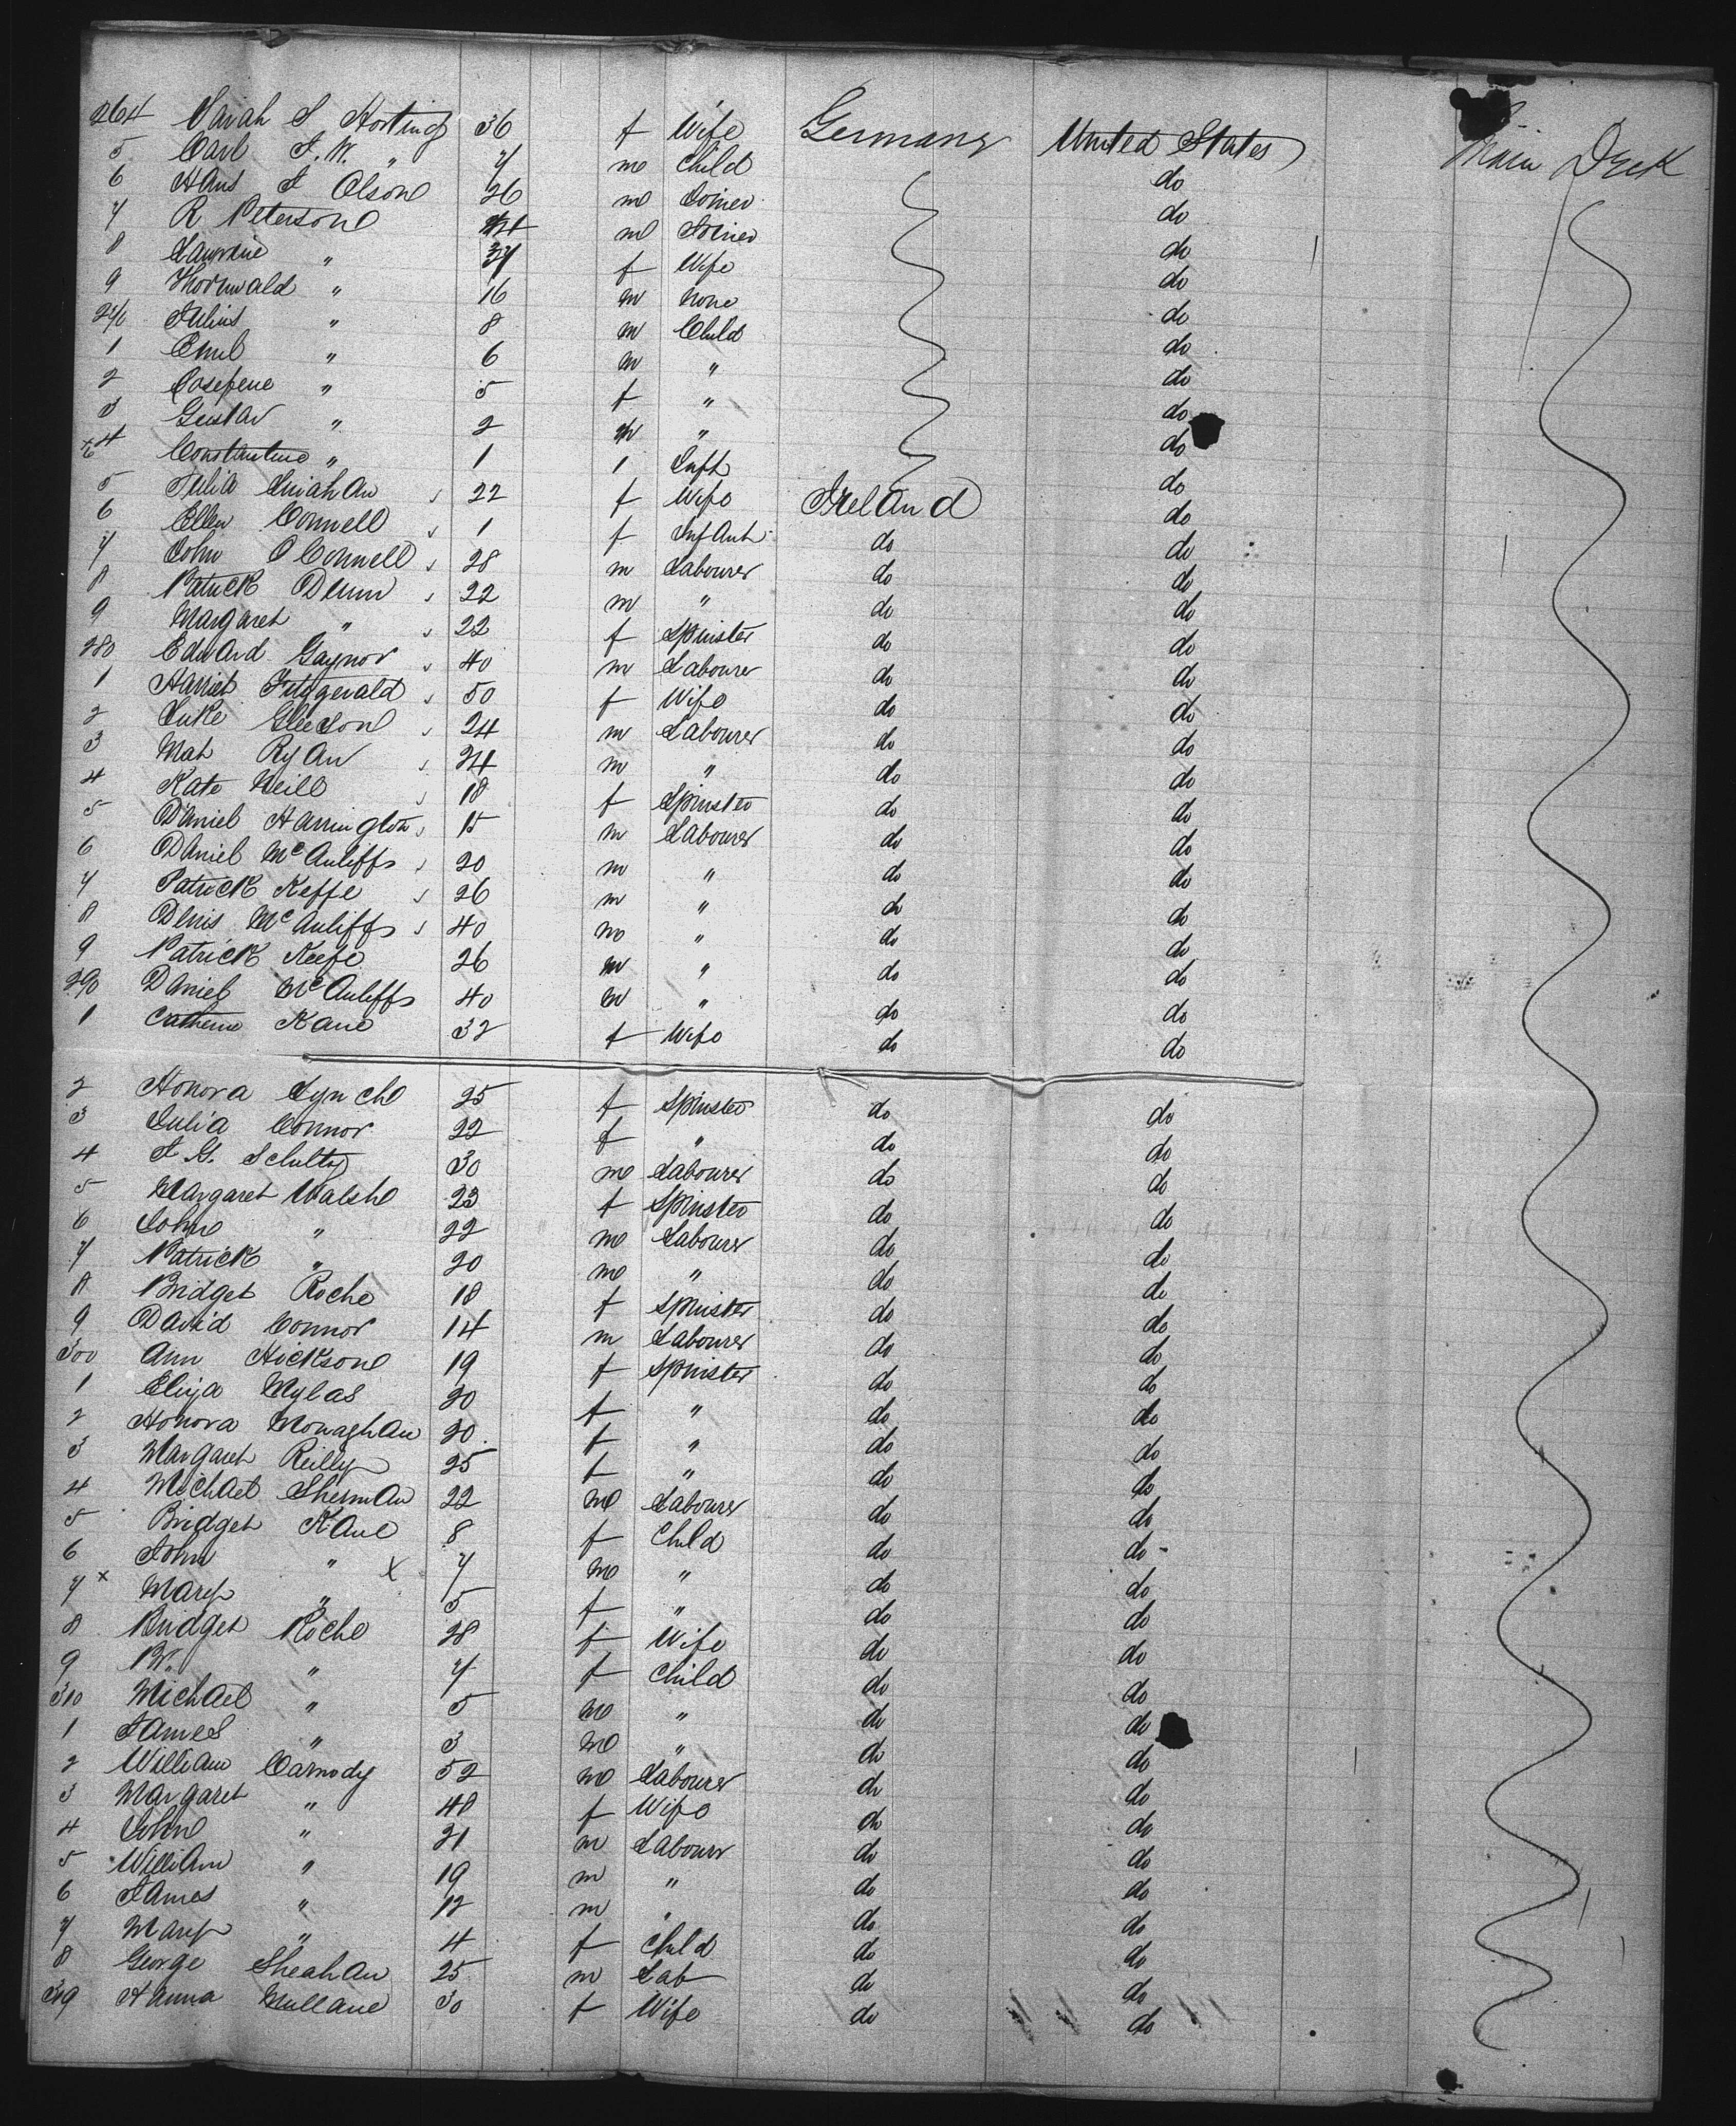 264 Sarah S Horting 36 f Wife Germany United States Main Deck
5 Carl F. W. " 7 m Child do
6 Hans J Olson 26 m Joiner do
7 R Peterson m Joiner do
8 " 37 f Wife do
9 Thornwald " 16 m None do
270 Julius " 8 m Child do
1 Emil " 6 m " do
2 Josefene " 5 f " do
3 Gustav " 2 m " do
4 Constantine " 1 1 Inft do
5 Julia 22 f Wife Ireland do
6 Ellen Connell 1 f Infant do do
7 John O Connell 28 m Labourer do do
8 Patrick Dunn 22 m " do do
9 Margaret " 22 f Spinster do do
280 Edward Gaynor 40 m Labourer do do
1 Harriet Fitzgerald 50 f Wife do do
2 Luke Gleeson 24 m Labourer do do
3 Mat Ryan 24 m " do do
4 Kate Neill 18 f Spinster do do
5 Daniel Harrington 15 m Labourer do do
6 Daniel McAuliffe 20 m " do do
7 Patrick Keffe 26 m " do do
8 Denis McAuliffe 40 m " do do
9 Patrick Keefe 26 m " do do
290 Daniel McAuliffe 40 m " do do
1 Catherine Kane 32 f Wife do do
2 Honora Lynch 25 f Spinster do do
3 Julia Connor 22 f " do do
4 J. G. Schultz 30 m Labourer do do
5 Margaret Walsh 23 f Spinster do do
6 John " 22 m Labourer do do
7 Patrick " 20 m " do do
8 Bridget Roche 18 f Spinster do do
9 David Connor 14 m Labourer do do
300 Ann Hickson 19 f Spinster do do
1 Eliza Mylas 20 f " do do
2 Honora Monaghan 20 f " do do
3 Margaret Reilly 25 f " do do
4 Michael Sherman 22 m Labourer do do
5 Bridget Kane 8 f Child do do
6 John " x 7 m " do do
7 x Mary " 5 f " do do
8 Bridget Roche 28 f Wife do do
9 B. " 7 f Child do do
310 Michael " 5 m " do do
1 James " 3 m " do do
2 William Carmody 52 m Labourer do do
3 Margaret " 48 f Wife do do
4 John " 21 m Labourer do do
5 William " 19 m " do do
6 James " 12 m " do do
7 Mary " 4 f Child do do
8 George Sheahan 25 m Lab do do
319 Hanna Mullane 30 f Wife do do